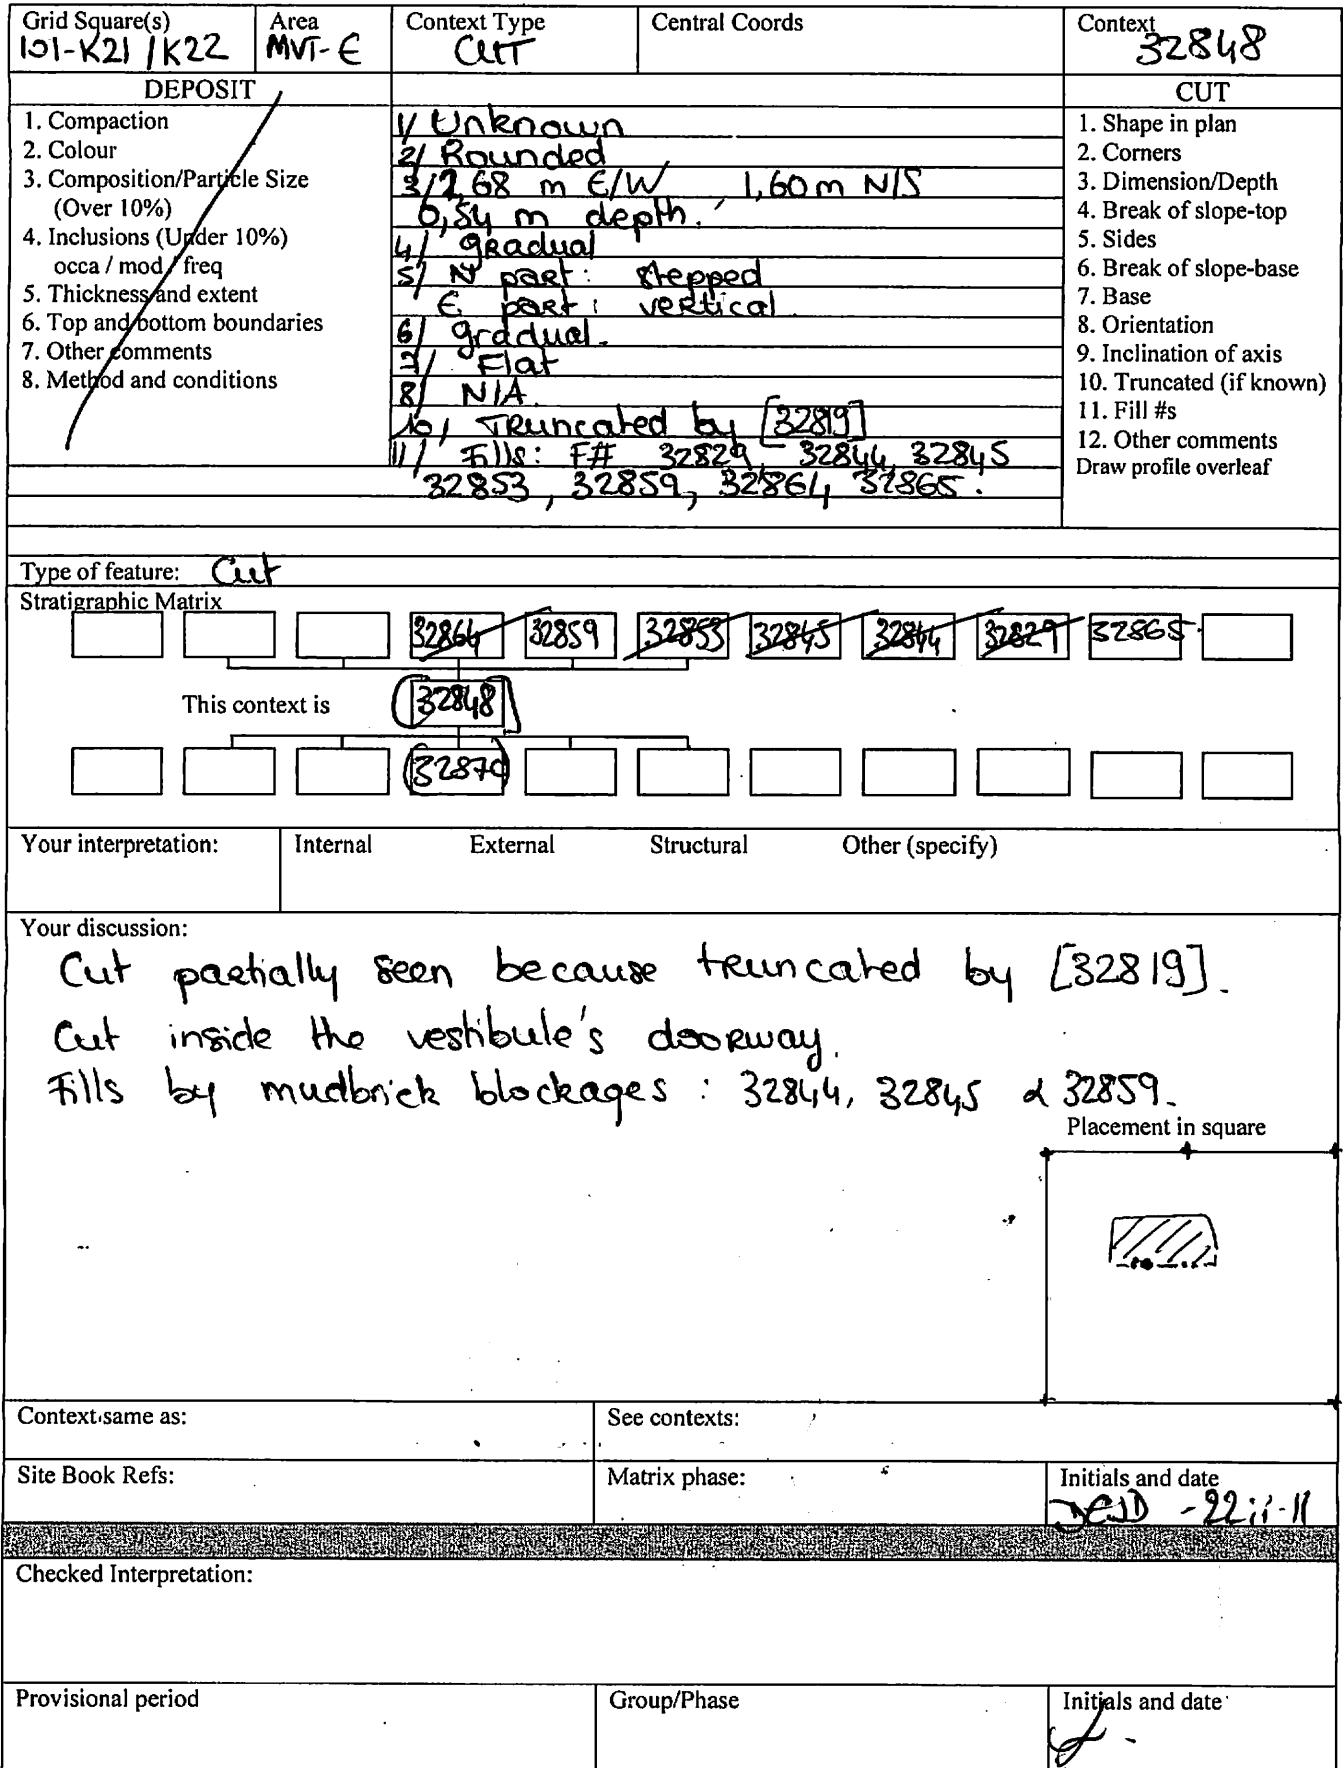 Grid Square(s) Area Context Type Central Coords Context
101-K21 / K22 MVT-E CUT 32848
DEPOSIT CUT
1. Compaction
2. Colour
3. Composition/Particle Size
(Over 10%)
4. Inclusions (Under 10%)
occa / mod / freq
5. Thickness and extent
6. Top and bottom boundaries
7. Other comments
8. Method and conditions
1/ Unknown
2/ Rounded
3/ 2,68 m E/W 1,60 m N/S
0,54 m depth.
4/ gradual
5/ N part: stepped
E part: vertical
6/ gradual.
7/ Flat
8/ N/A.
10/ Truncated by [32819]
11/ Fills: F# 32829, 32844, 32845
32853, 32859, 32864, 32865.
1. Shape in plan
2. Corners
3. Dimension/Depth
4. Break of slope-top
5. Sides
6. Break of slope-base
7. Base
8. Orientation
9. Inclination of axis
10. Truncated (if known)
11. Fill #s
12. Other comments
Draw profile overleaf
Type of feature: Cut
Stratigraphic Matrix
32864 32859 32853 32845 32844 32829 32865
This context is [32848]
(32870)
Your interpretation: Internal External Structural Other (specify)
Your discussion:
Cut partially seen because truncated by [32819].
Cut inside the vestibule's doorway.
Fills by mudbrick blockages : 32844, 32845 & 32859.
Placement in square
Context same as: See contexts:
Site Book Refs: Matrix phase: Initials and date
Checked Interpretation:
Provisional period Group/Phase Initials and date